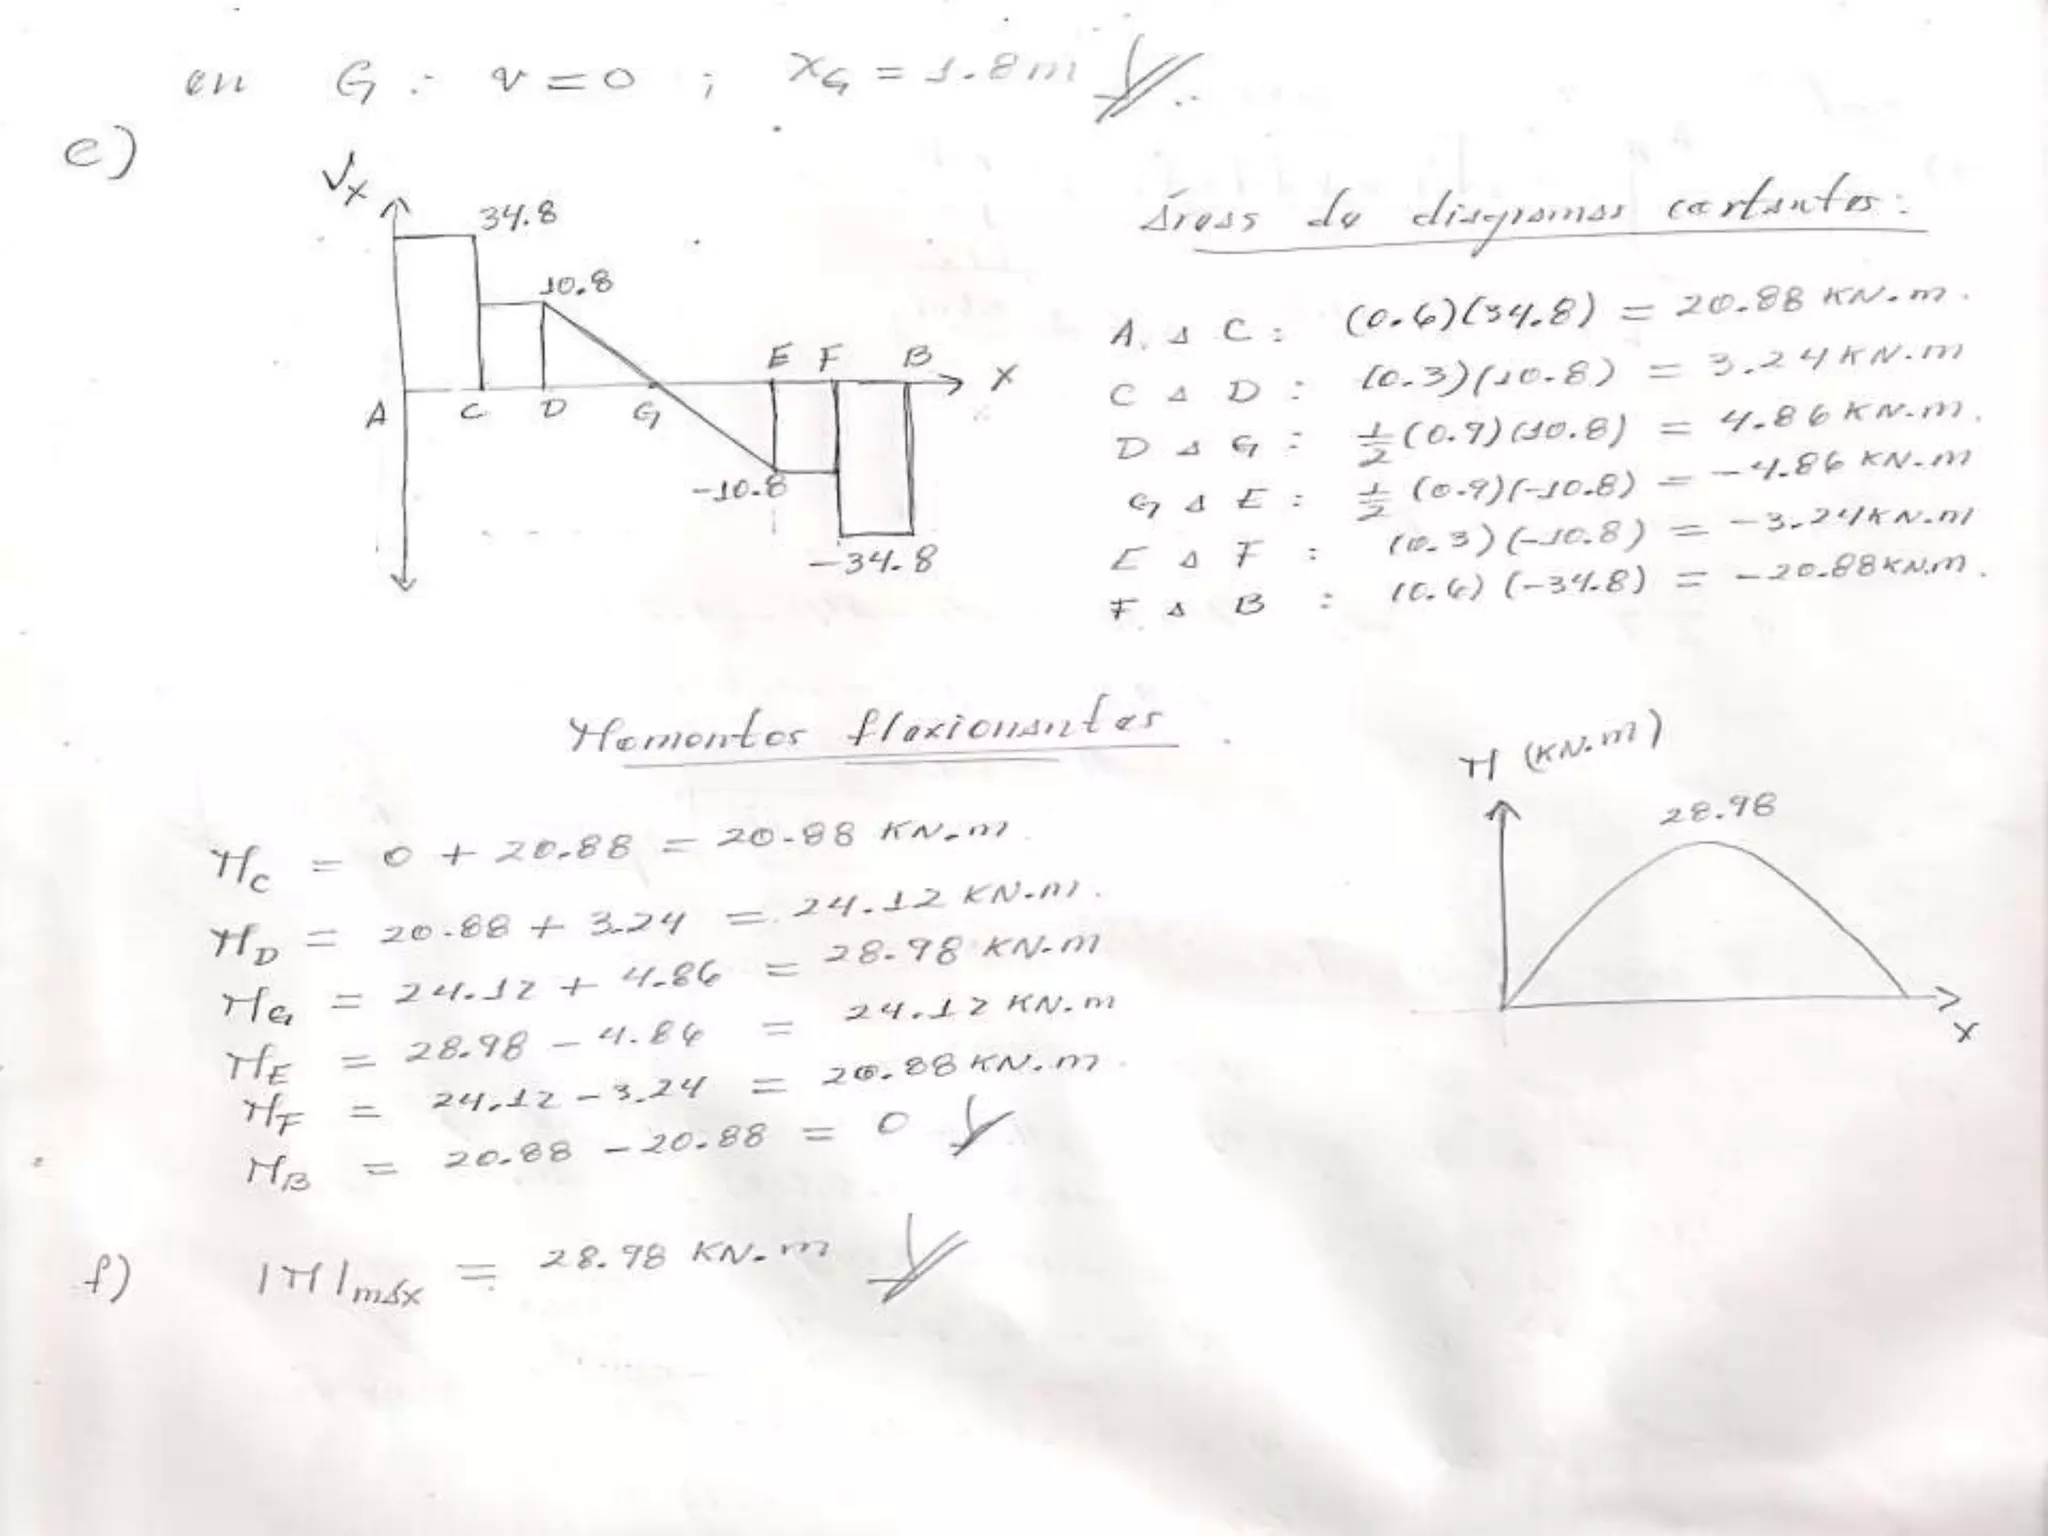 en G : v = 0 ; XG = 1.8m
e)
Vx
34.8
10.8
E F B
X
A C D G
-10.8
-34.8
Áreas de diagramas cortantes:
A a C : (0.6)(34.8) = 20.88 KN.m.
C a D : (0.3)(10.8) = 3.24 KN.m
D a G : 1/2 (0.9)(10.8) = 4.86 KN.m.
G a E : 1/2 (0.9)(-10.8) = -4.86 KN.m
E a F : (0.3)(-10.8) = -3.24 KN.m
F a B : (0.6)(-34.8) = -20.88 KN.m.
Momentos flexionantes
MC = 0 + 20.88 = 20.88 KN.m
MD = 20.88 + 3.24 = 24.12 KN.m.
MG = 24.12 + 4.86 = 28.98 KN.m
ME = 28.98 - 4.86 = 24.12 KN.m
MF = 24.12 - 3.24 = 20.88 KN.m
MB = 20.88 - 20.88 = 0
M (KN.m)
28.98
X
f) |M|máx = 28.98 KN.m